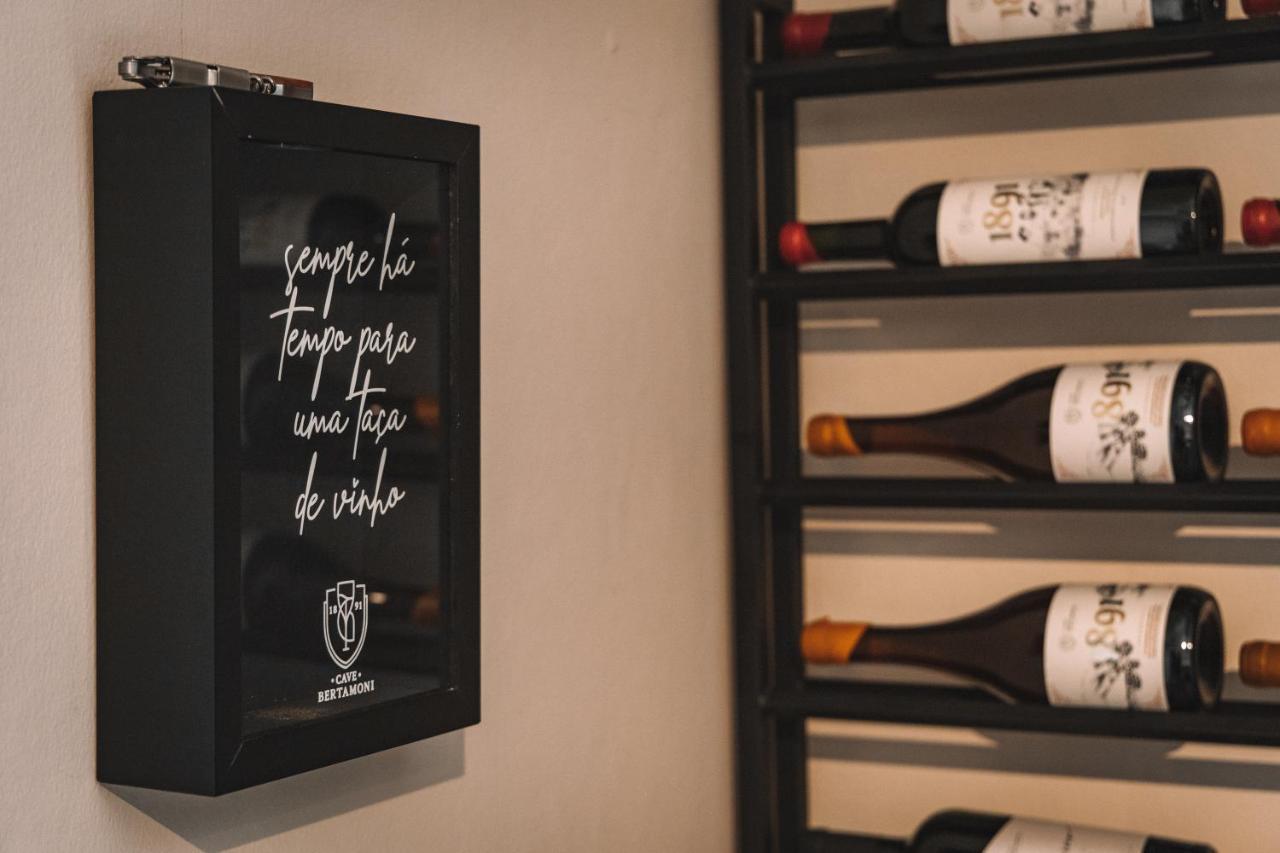 sempre há
tempo para
uma taça
de vinho
18 91
• CAVE •
BERTAMONI
1891
1891
1891
1891